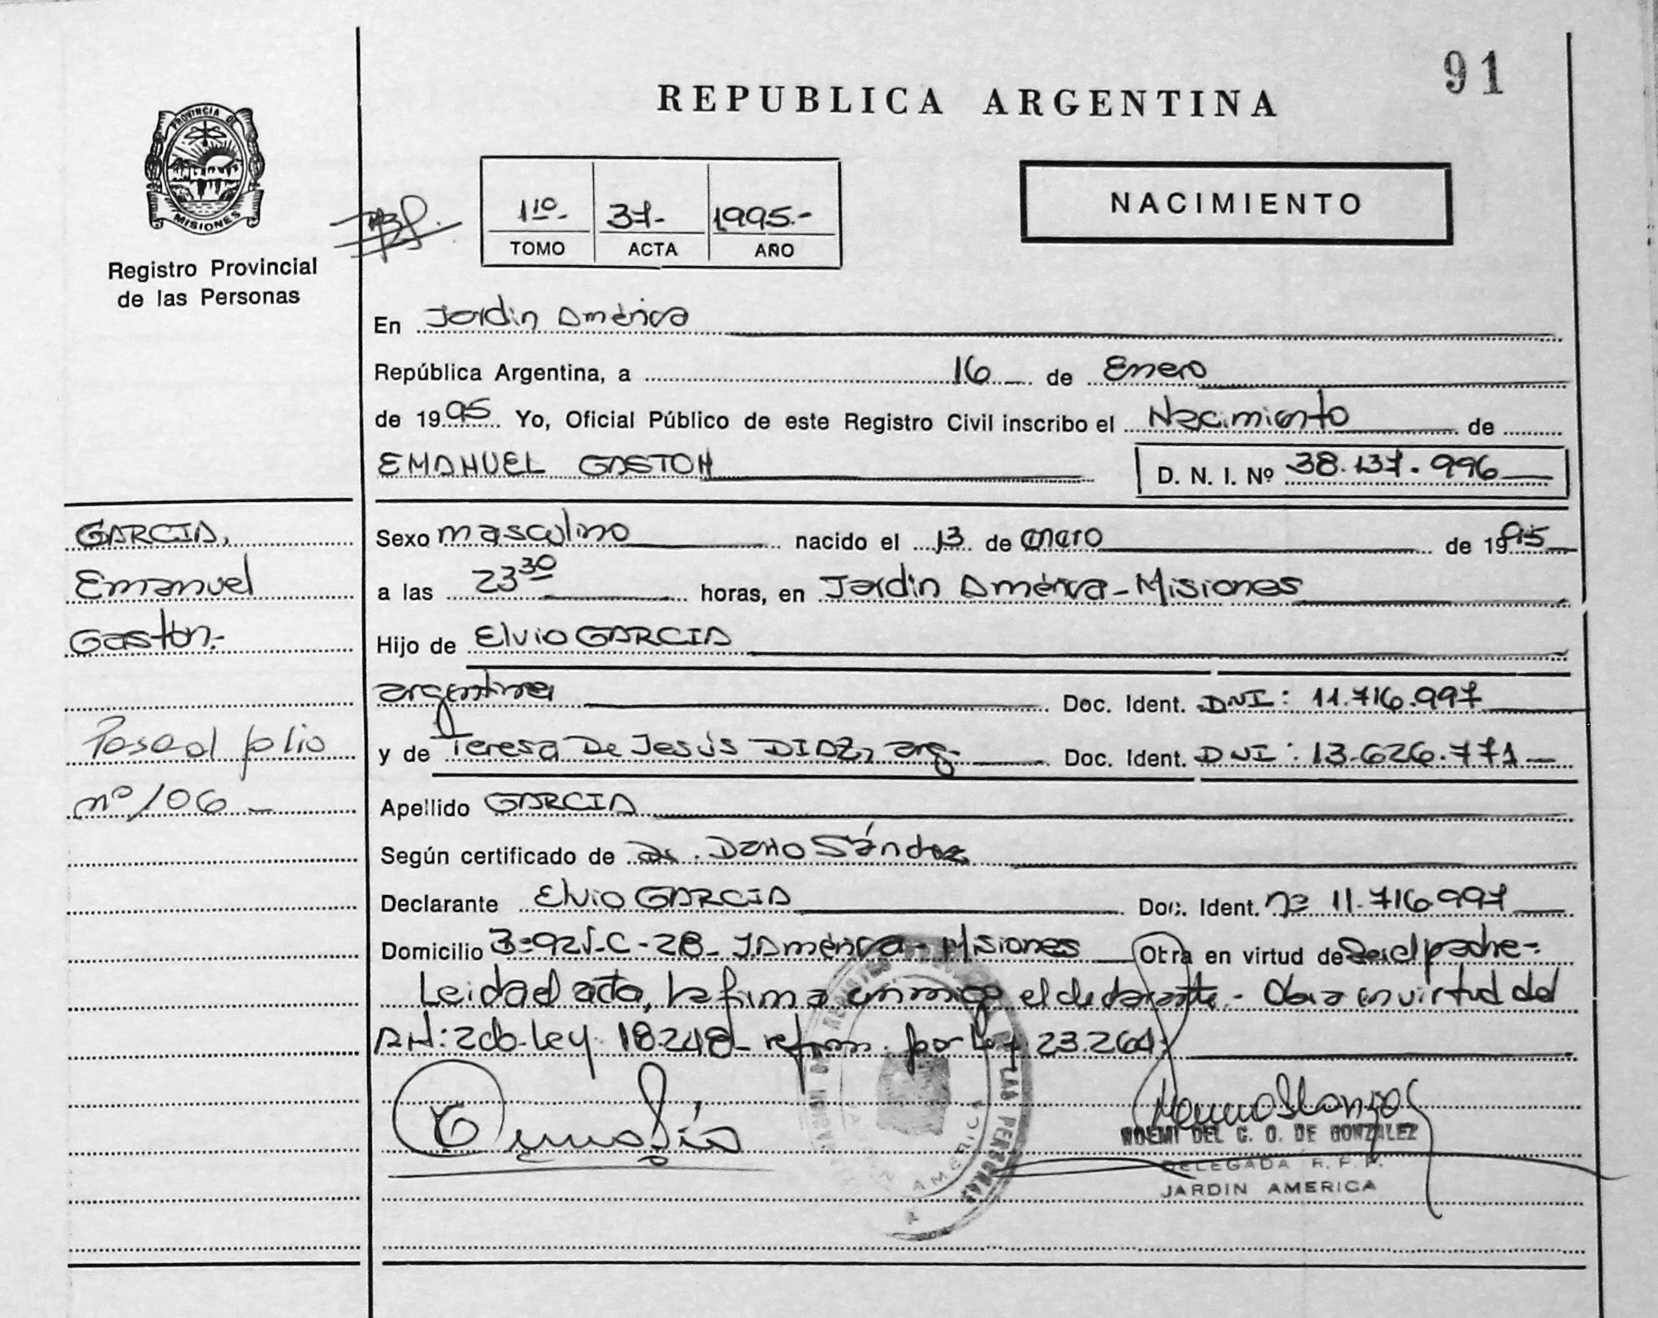 91
REPUBLICA ARGENTINA
PROVINCIA DE
MISIONES
Registro Provincial
de las Personas
1º 37- 1995.-
TOMO ACTA AÑO
NACIMIENTO
En Jardin América
República Argentina, a 16 de Enero
de 1995 Yo, Oficial Público de este Registro Civil inscribo el Nacimiento de
EMANUEL GASTON D. N. I. Nº 38.137.996
GARCIA,
Emanuel
Gaston.-
Pase al folio
nº 106
Sexo masculino nacido el 13 de enero de 1995
a las 23³⁰ horas, en Jardin América-Misiones
Hijo de Elvio GARCIA
argentina Doc. Ident. DNI: 11.716.997
y de Teresa De Jesús DIAZ, arg. Doc. Ident. DNI: 13.626.771
Apellido GARCIA
Según certificado de Dr. Dario Sánchez
Declarante Elvio GARCIA Doc. Ident. nº 11.716.997
Domicilio J. América - Misiones Obra en virtud de Ser el padre-:
Leida el acta, la firma conmigo el declarante- Obra en virtud del
Art: 2do- Ley 18.248- reform. por Ley 23.264:
NOEMI DEL C. O. DE GONZALEZ
DELEGADA R. P. P.
JARDIN AMERICA
DE LAS PERSONAS